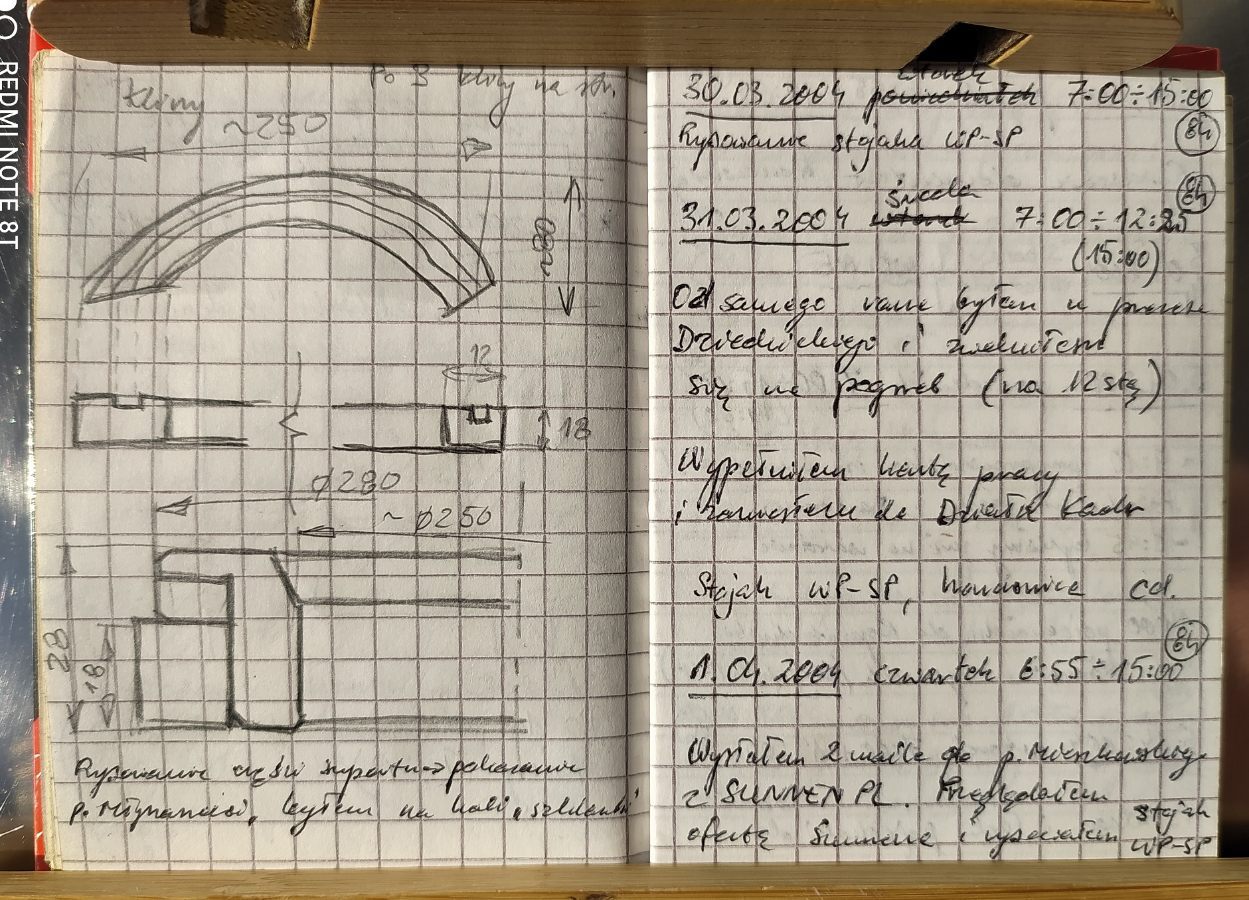 REDMI NOTE 8T
Po 3 kliny na str.
Kliny
~250
~80
12
18
ø280
~ø250
28
18
Rysowanie części suportu → pokazanie
byłem na hali
30.03.2004 wtorek poniedziałek 7:00÷15:00
8h
Rysowanie stojaka WP-SP
8h
31.03.2004 środa wtorek 7:00÷12:25
(15:00)
Od samego rana byłem u prezesa
Dziednickiego i zwolniłem
się na pogrzeb (na 12stą)
Wypełniłem kartę pracy
i zaniosłem do Działu Kadr
Stojak WP-SP, cd.
8h
1.04.2004 czwartek 6:55÷15:00
Wysłałem 2 maile do p.
z SUNNEN PL. Przeglądałem
ofertę Sunnena i rysowałem stojak
WP-SP